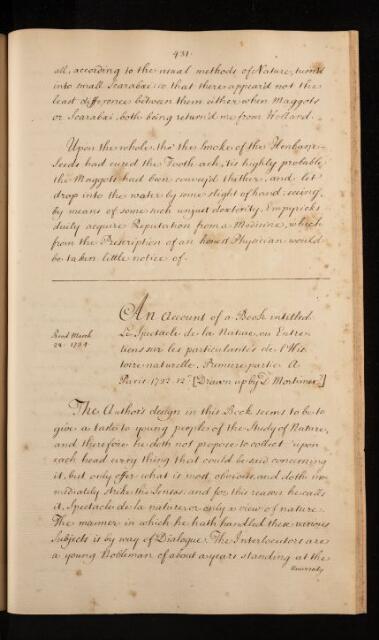 431.
all, according to the usual methods of Nature, turn'd
into small Scarabai: so that there appear'd not the
least difference between them either when Maggots
or Scarabai. both being return'd me from Holland.
Upon the whole, tho' the Smoke of the Henbane-
Seeds had cured the Tooth ach, tis highly probable
the Maggots had been convey'd thither, and let
drop into the water by some slight of hand: seeing,
by means of some such unjust dexterity, Empyricks
daily acquire Reputation from a Medicine, which
from the Prescription of an honest Physician would
be taken little notice of.
An Account of a Book intitled
Read March
Le Spectacle de la Nature, ou Entre-
1734
tiens sur les particularités de l'His
toire naturelle. Premiere partie A
Paris 1732. 12° [Drawn up by Dr Mortimer]
The Author's design in this Book seems to be to
give a taste to young people of the Study of Nature,
and therefore he doth not propose to collect upon
each head every thing that could be said concerning
it, but only offer what is most obvious, and doth im
mediately strike the Senses. and for this reason he calls
it, Spectacle de la nature or only a view of nature.
The manner in which he hath handled these various
Subjects is by way of Dialogue. The Interlocutors are
a young Nobleman of about a years standing at the
University